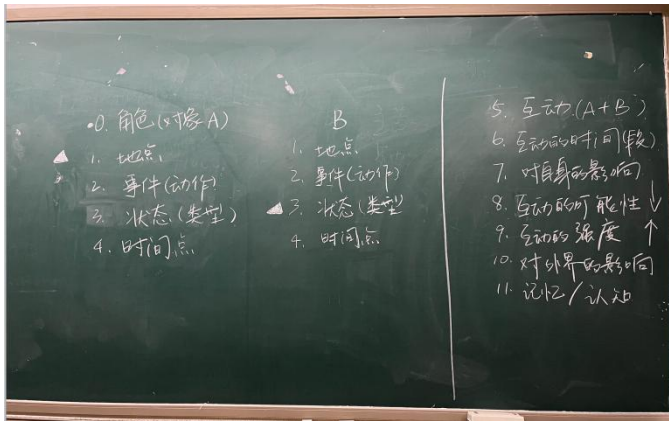 0. 角色(对象A)
1. 地点
2. 事件(动作)
3. 状态(类型)
4. 时间点
B
1. 地点
2. 事件(动作)
3. 状态(类型)
4. 时间点
5. 互动(A+B)
6. 互动的时间(段)
7. 对自身的影响
8. 互动的可能性 ↓
9. 互动的强度 ↑
10. 对外界的影响
11. 记忆/认知